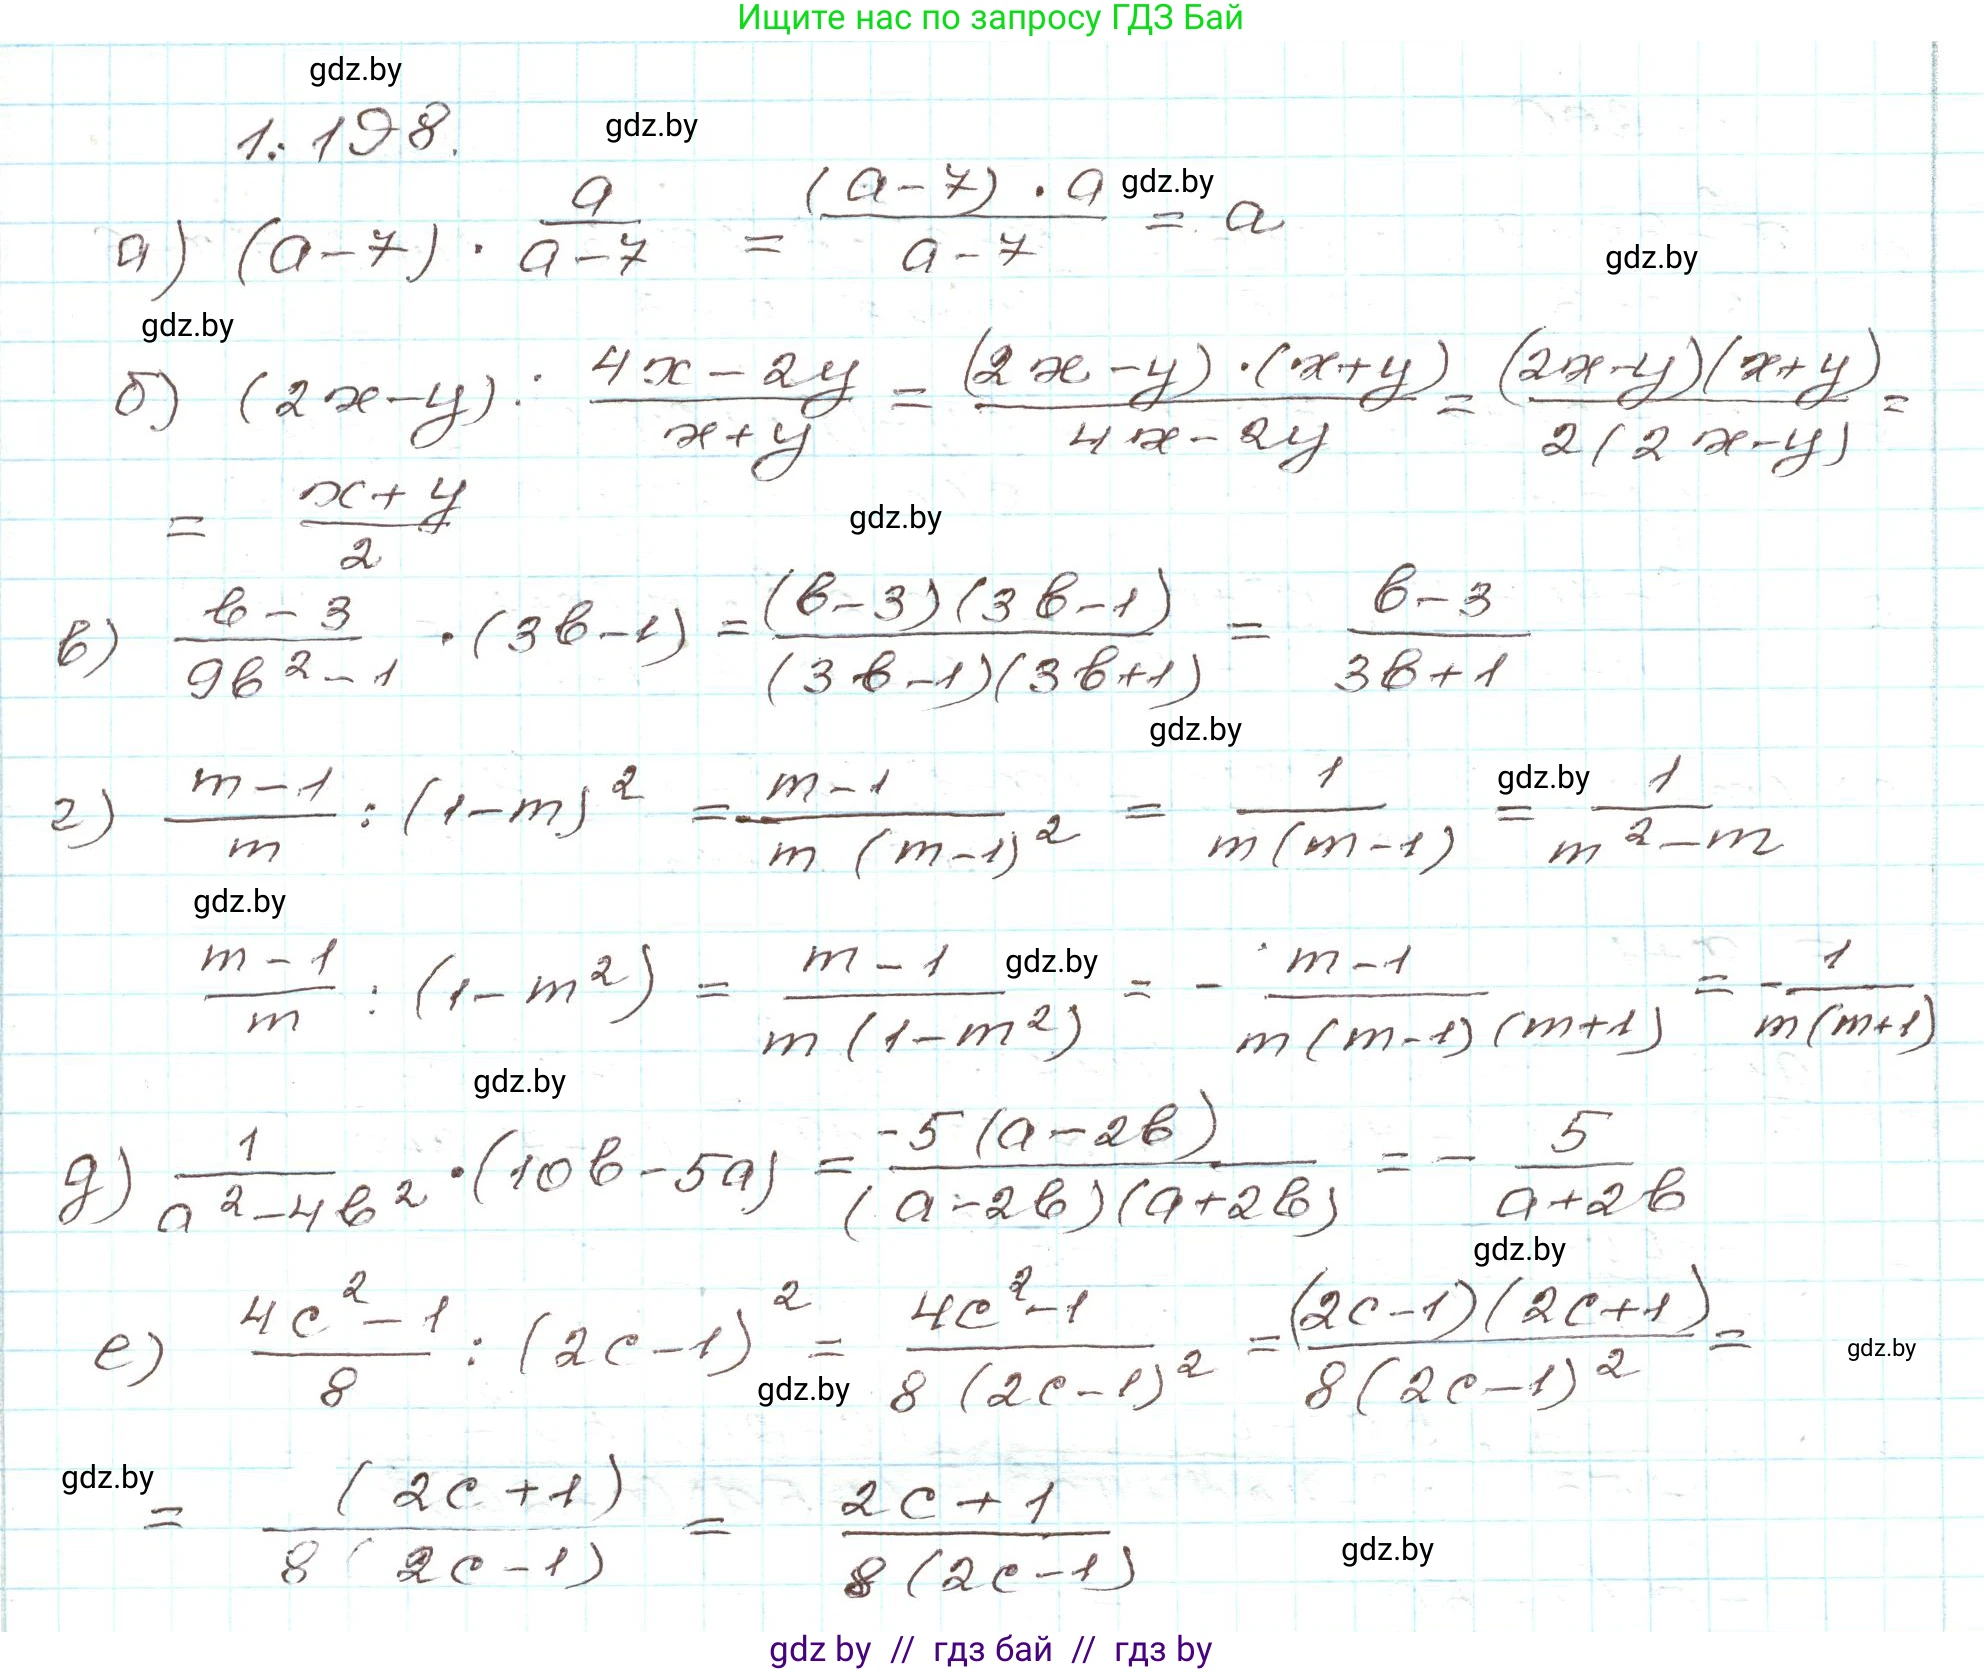 Ищите нас по запросу ГДЗ Бай
gdz.by
1.198.
gdz.by
а) (a-7) · \frac{a}{a-7} = \frac{(a-7) · a}{a-7} = a
gdz.by
gdz.by
gdz.by
б) (2x-y) : \frac{4x-2y}{x+y} = \frac{(2x-y) · (x+y)}{4x-2y} = \frac{(2x-y)(x+y)}{2(2x-y)} =
= \frac{x+y}{2}
gdz.by
в) \frac{b-3}{9b^2-1} · (3b-1) = \frac{(b-3)(3b-1)}{(3b-1)(3b+1)} = \frac{b-3}{3b+1}
gdz.by
г) \frac{m-1}{m} : (1-m)^2 = \frac{m-1}{m(m-1)^2} = \frac{1}{m(m-1)} = \frac{1}{m^2-m}
gdz.by
gdz.by
\frac{m-1}{m} : (1-m^2) = \frac{m-1}{m(1-m^2)} = - \frac{m-1}{m(m-1)(m+1)} = - \frac{1}{m(m+1)}
gdz.by
gdz.by
д) \frac{1}{a^2-4b^2} · (10b-5a) = \frac{-5(a-2b)}{(a-2b)(a+2b)} = - \frac{5}{a+2b}
gdz.by
е) \frac{4c^2-1}{8} : (2c-1)^2 = \frac{4c^2-1}{8(2c-1)^2} = \frac{(2c-1)(2c+1)}{8(2c-1)^2} =
gdz.by
gdz.by
gdz.by
= \frac{(2c+1)}{8(2c-1)} = \frac{2c+1}{8(2c-1)}
gdz.by
gdz by // гдз бай // гдз by